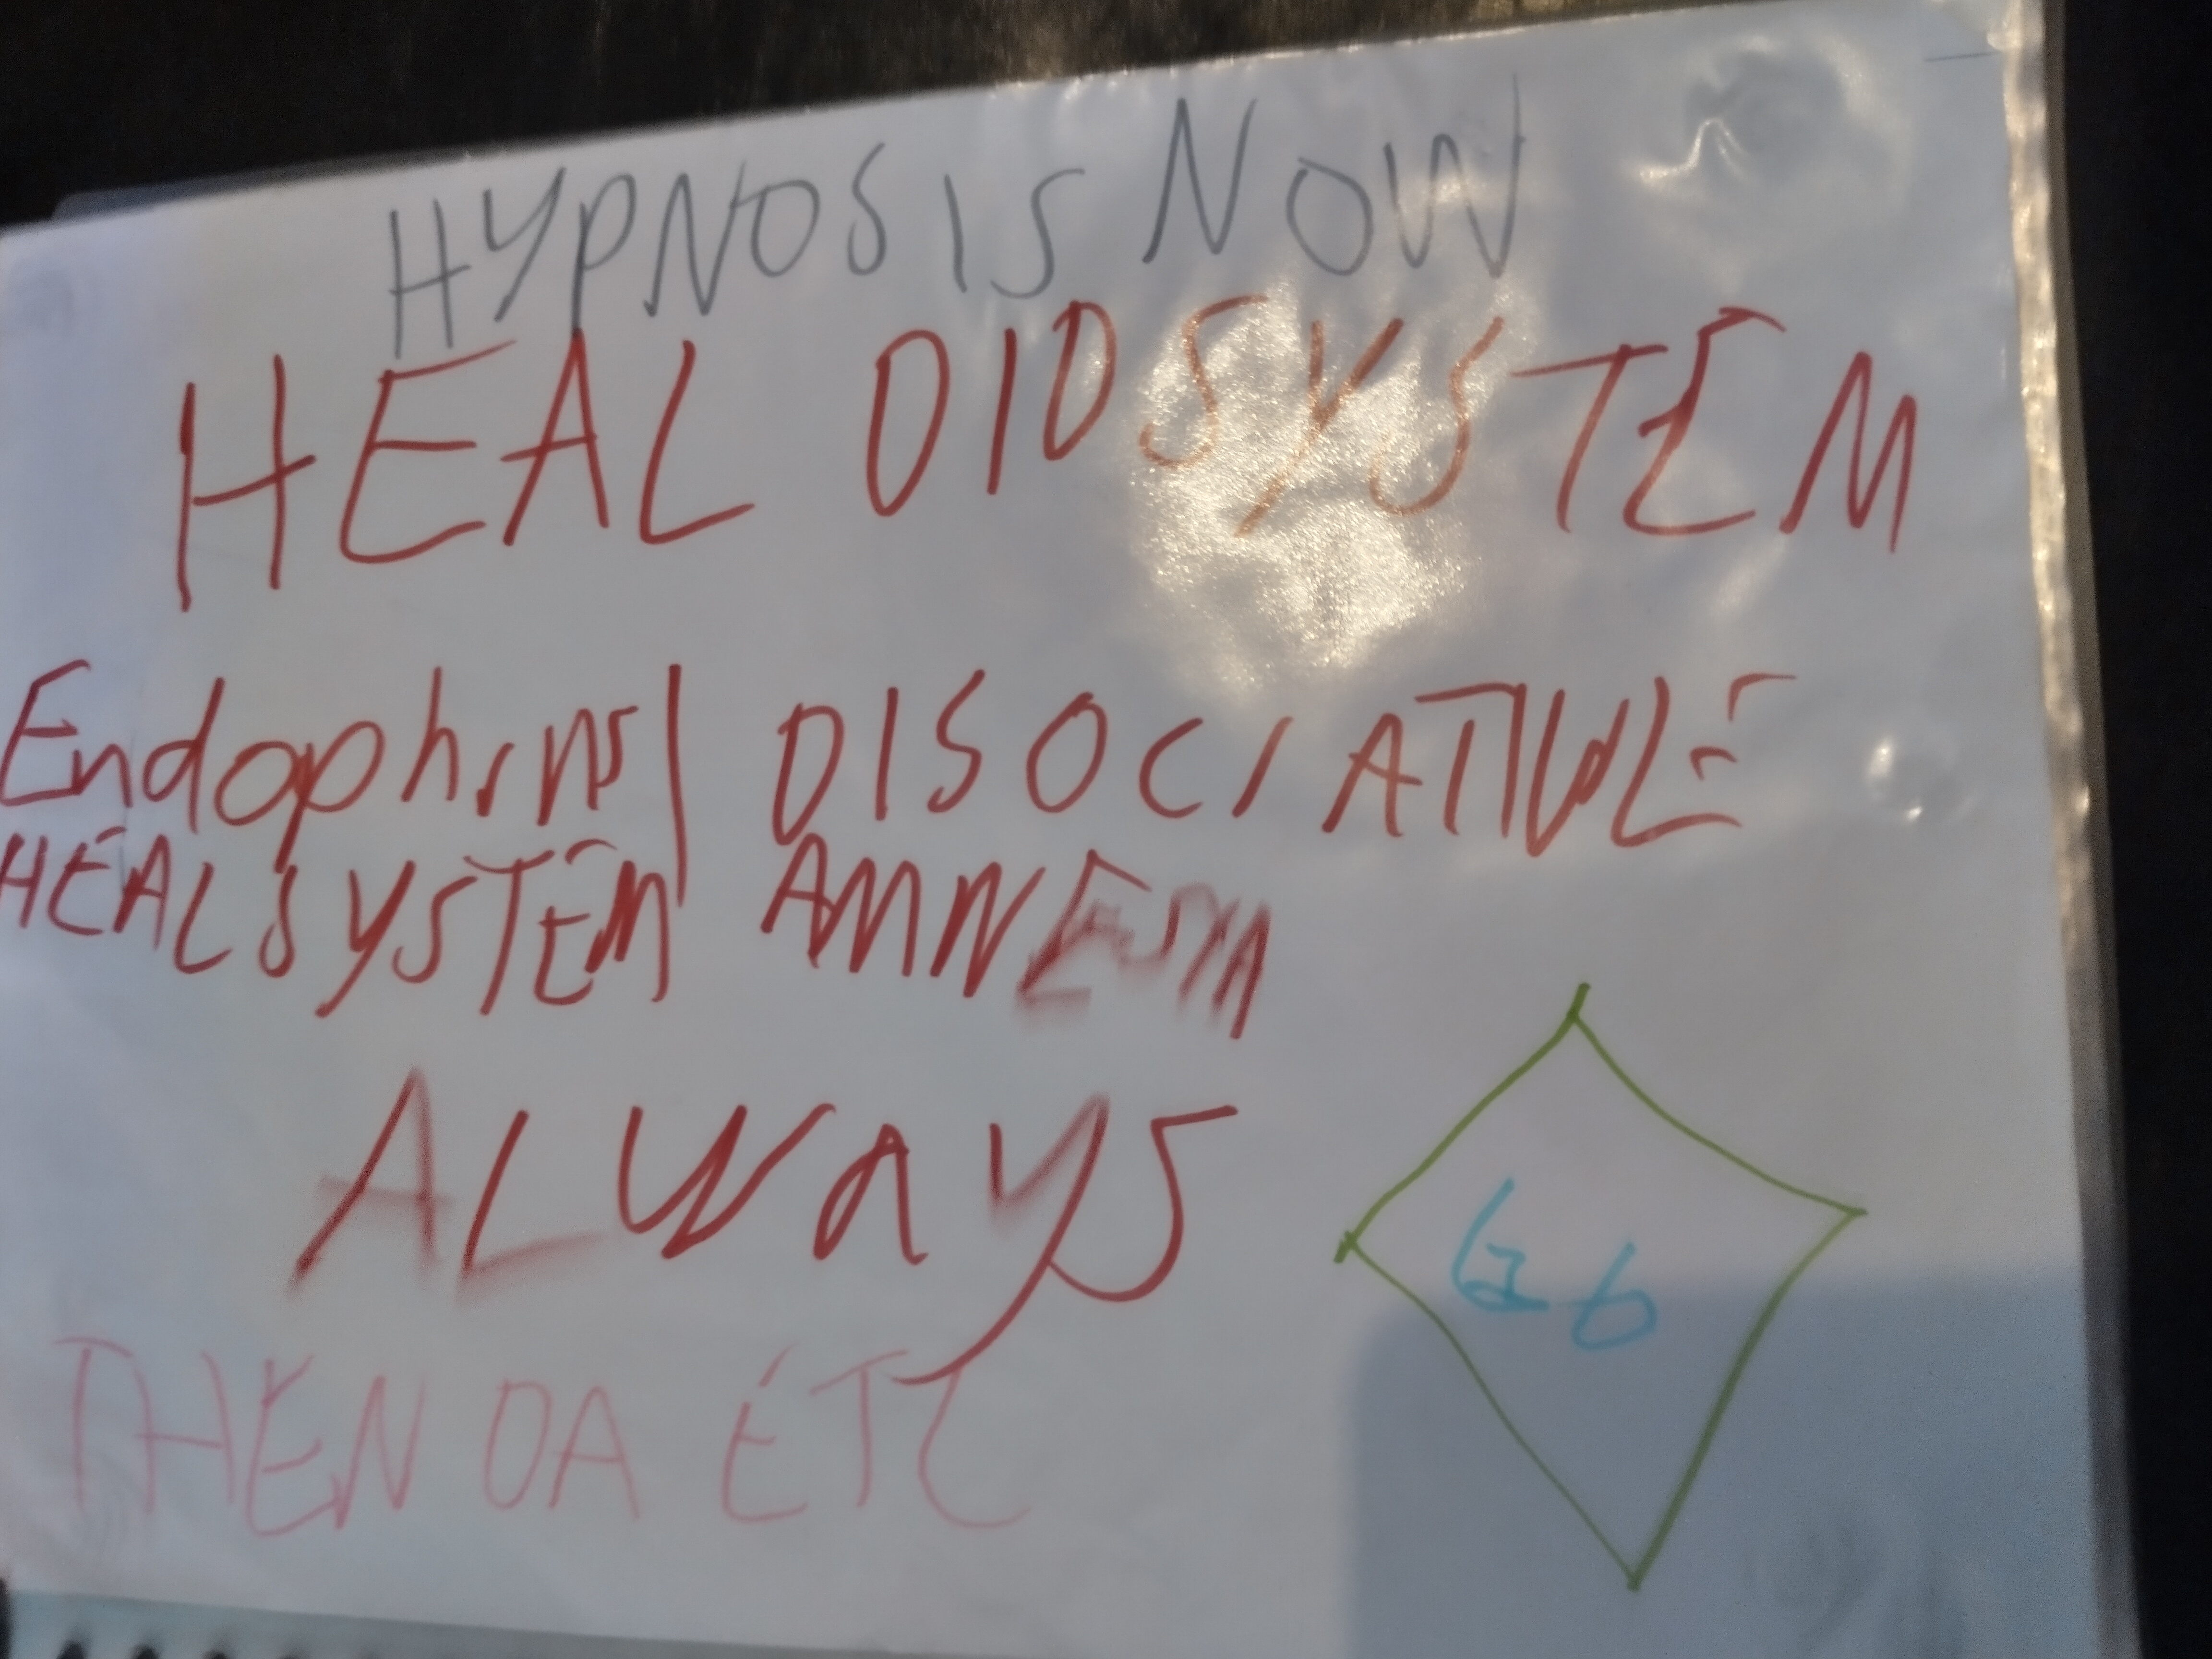 HYPNOSIS NOW
HEAL DID SYSTEM
Endophins DISOCIATIVE
HEAL SYSTEM AMNESYA
ALWAYS
THEN DA ETC